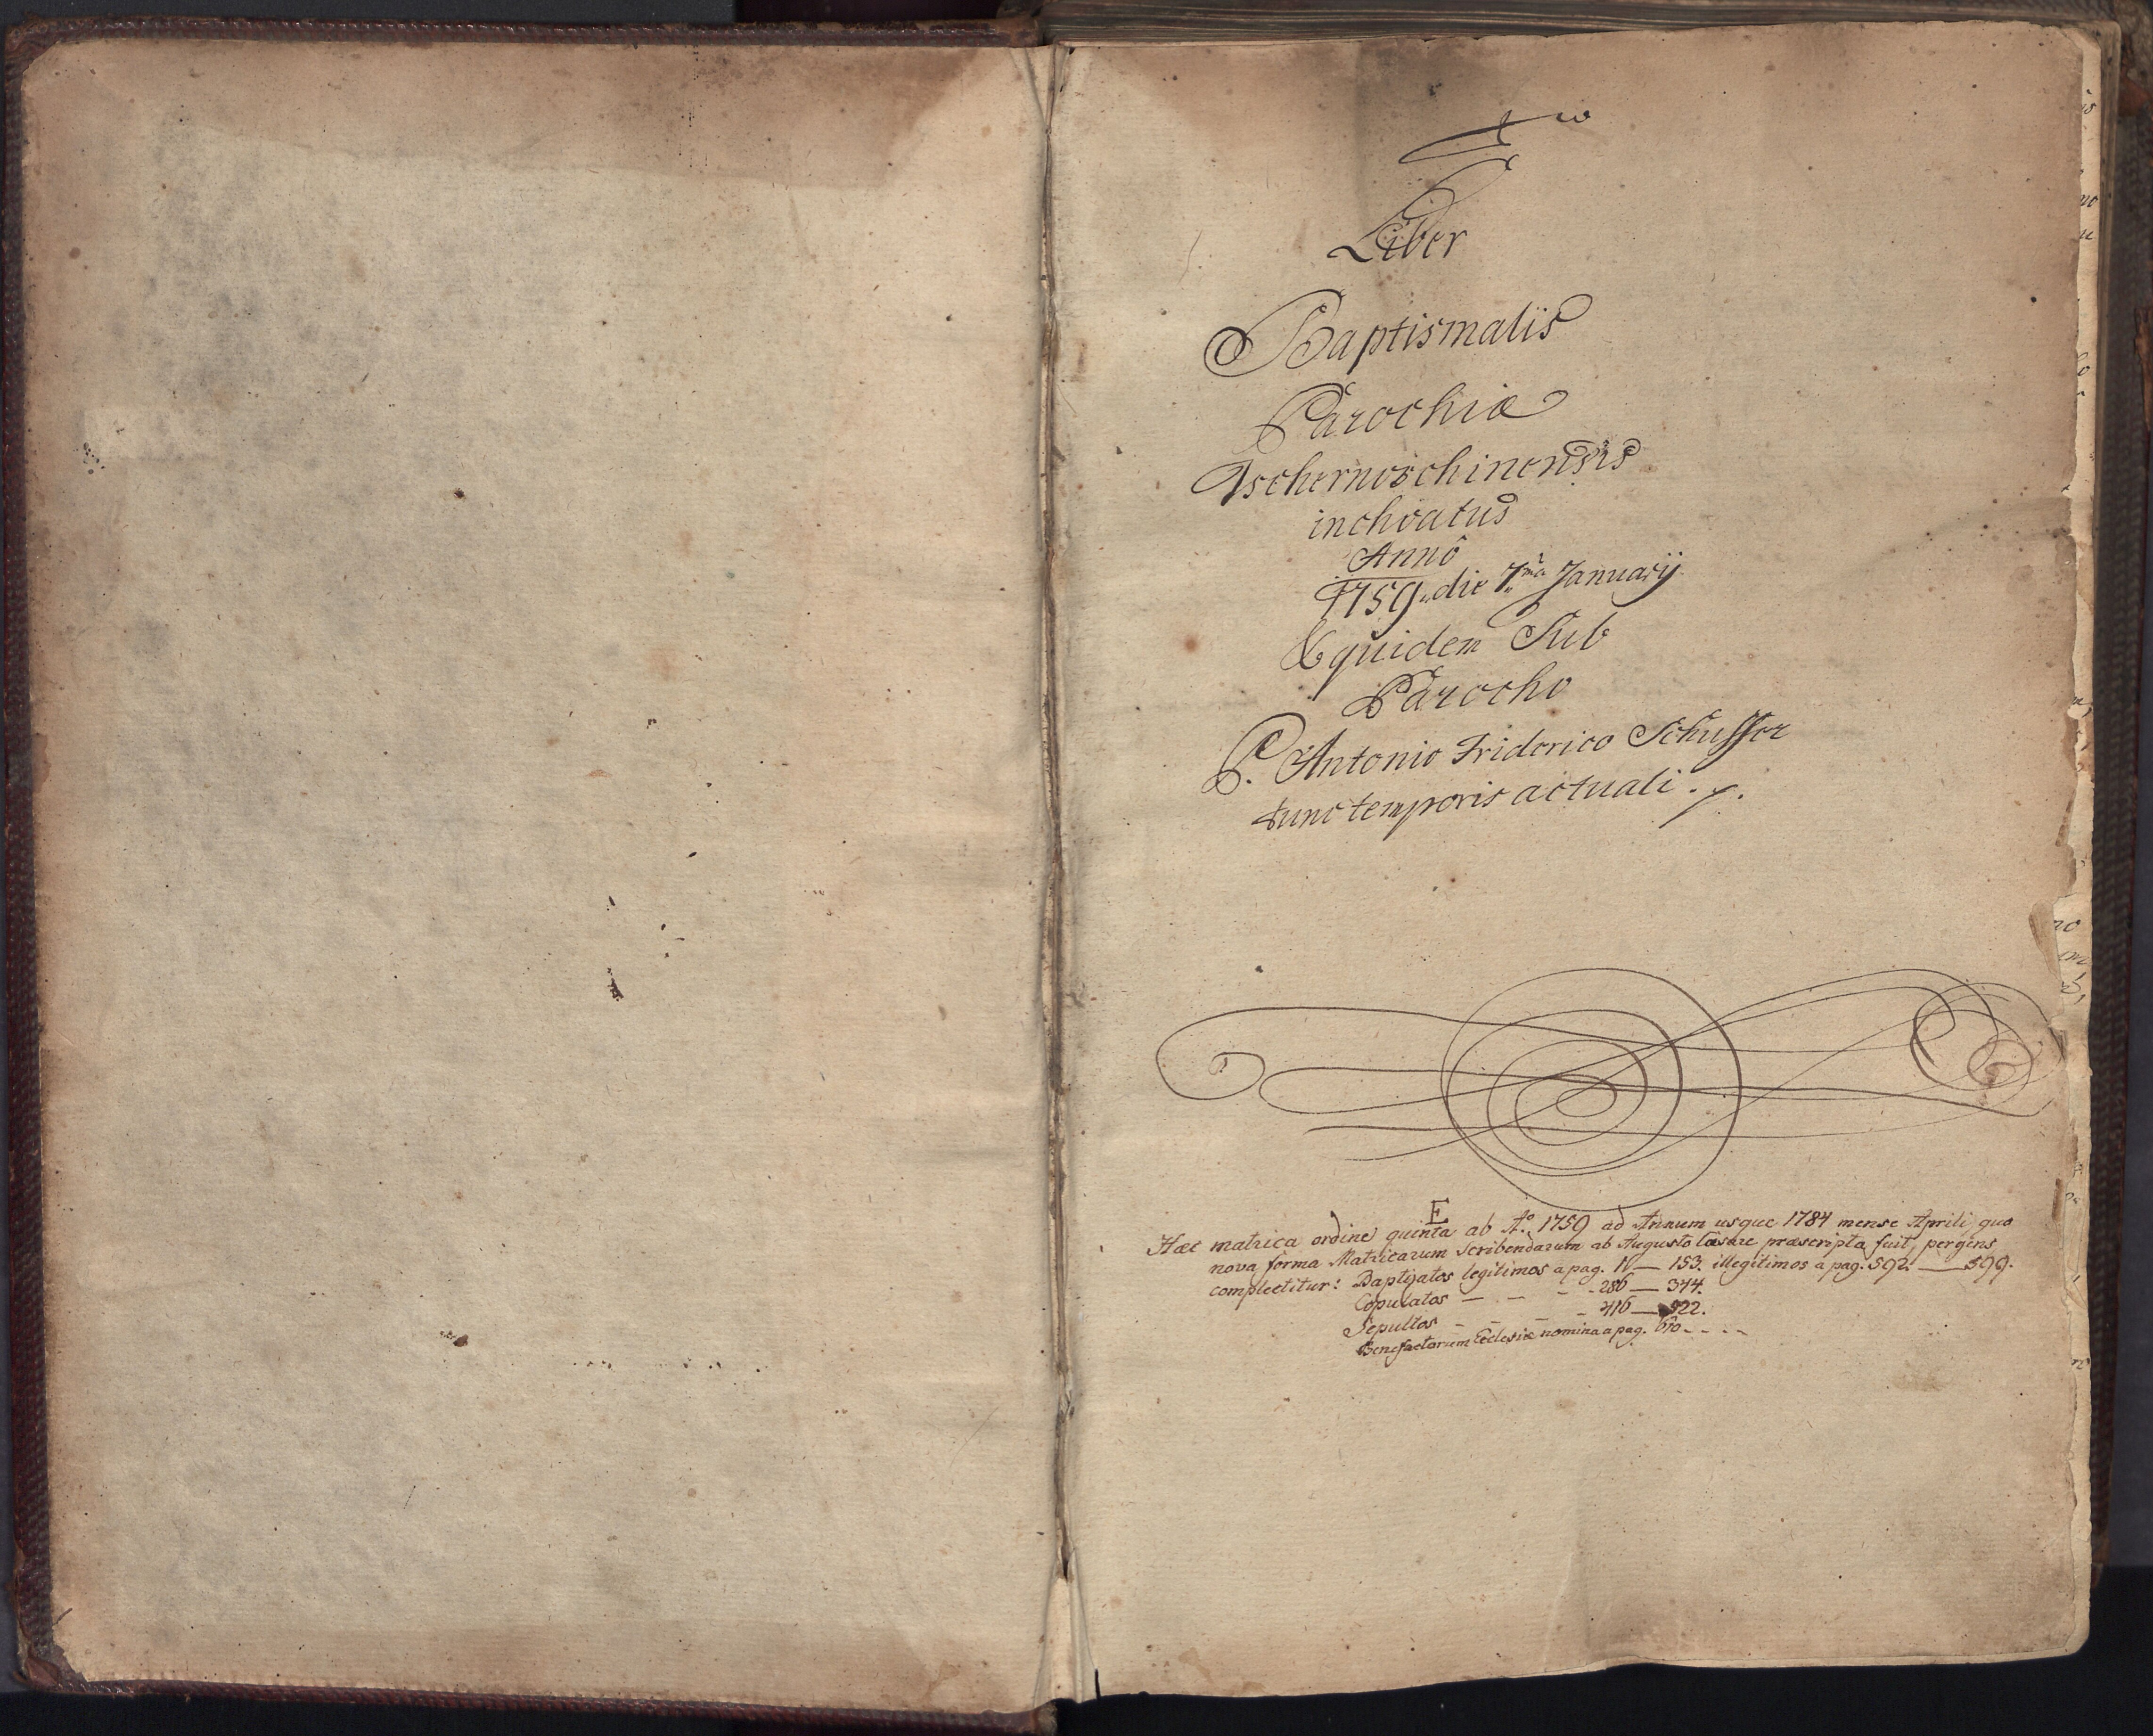 Liber
Baptismalis
Parochiæ
Tschernoschinensis
inchoatus
Annô
1759 die 1ma January
Et quidem Sub
Parocho
P. Antonio Friderico Schusser
tunc temporis actuali
E
Hæc matrica ordine quinta ab Aº. 1759 ad Annum usque 1784 mense Aprili, quo
nova forma Matricarum scribendarum ab Augusto Cæsare præscripta fuit, pergens
complectitur: Baptizatos legitimos a pag. IV — 153. illegitimos a pag. 592 — 599.
Copulatos — — - - 286 — 344.
Sepultos - - - - 416 — 522.
Benefactorum Ecclesiæ nomina a pag. 610 - - - -